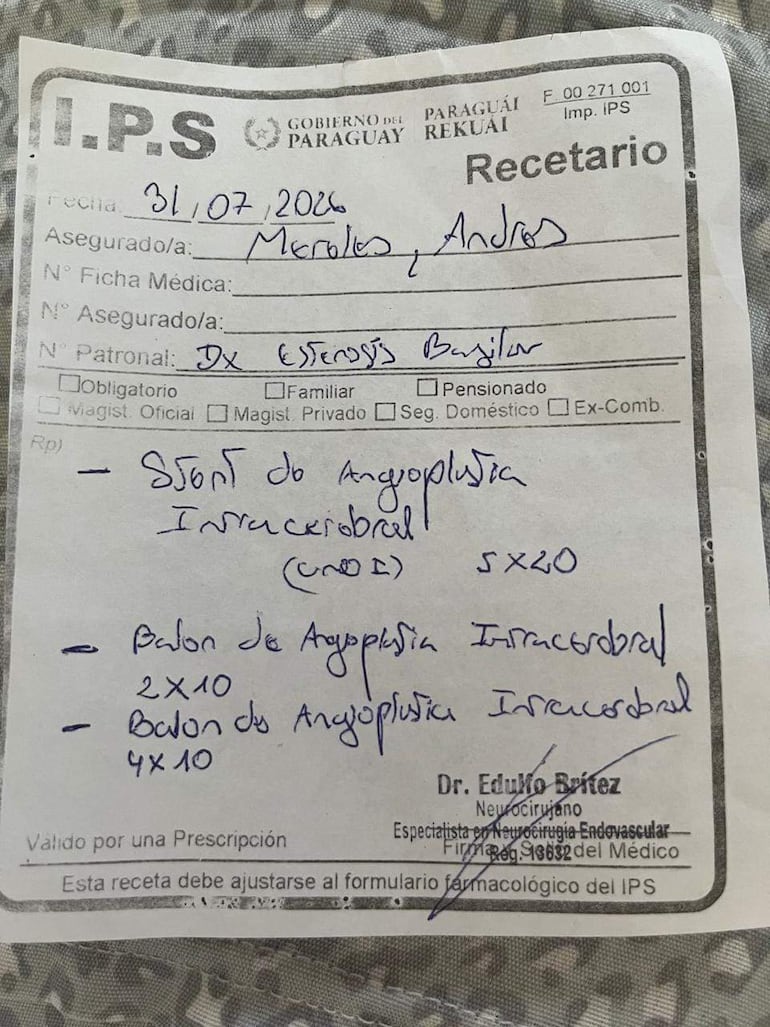 I.P.S
GOBIERNO DEL PARAGUAY
PARAGUÁI REKUÁI
F. 00 271 001
Imp. IPS
Recetario
Fecha: 31/07/2026
Asegurado/a: Meroles, Andres
N° Ficha Médica:
N° Asegurado/a:
N° Patronal: Dx Estenosis Basilar
Obligatorio Familiar Pensionado
Magist. Oficial Magist. Privado Seg. Doméstico Ex-Comb.
Rp)
- Stent de Angioplastia
Intracerebral
5x20
- Balon de Angioplastia Intracerebral
2x10
- Balon de Angioplastia Intracerebral
4x10
Dr. Edulfo Brítez
Neurocirujano
Especialista en Neurocirugía Endovascular
Reg. 13632
Válido por una Prescripción
Firma y Sello del Médico
Esta receta debe ajustarse al formulario farmacológico del IPS